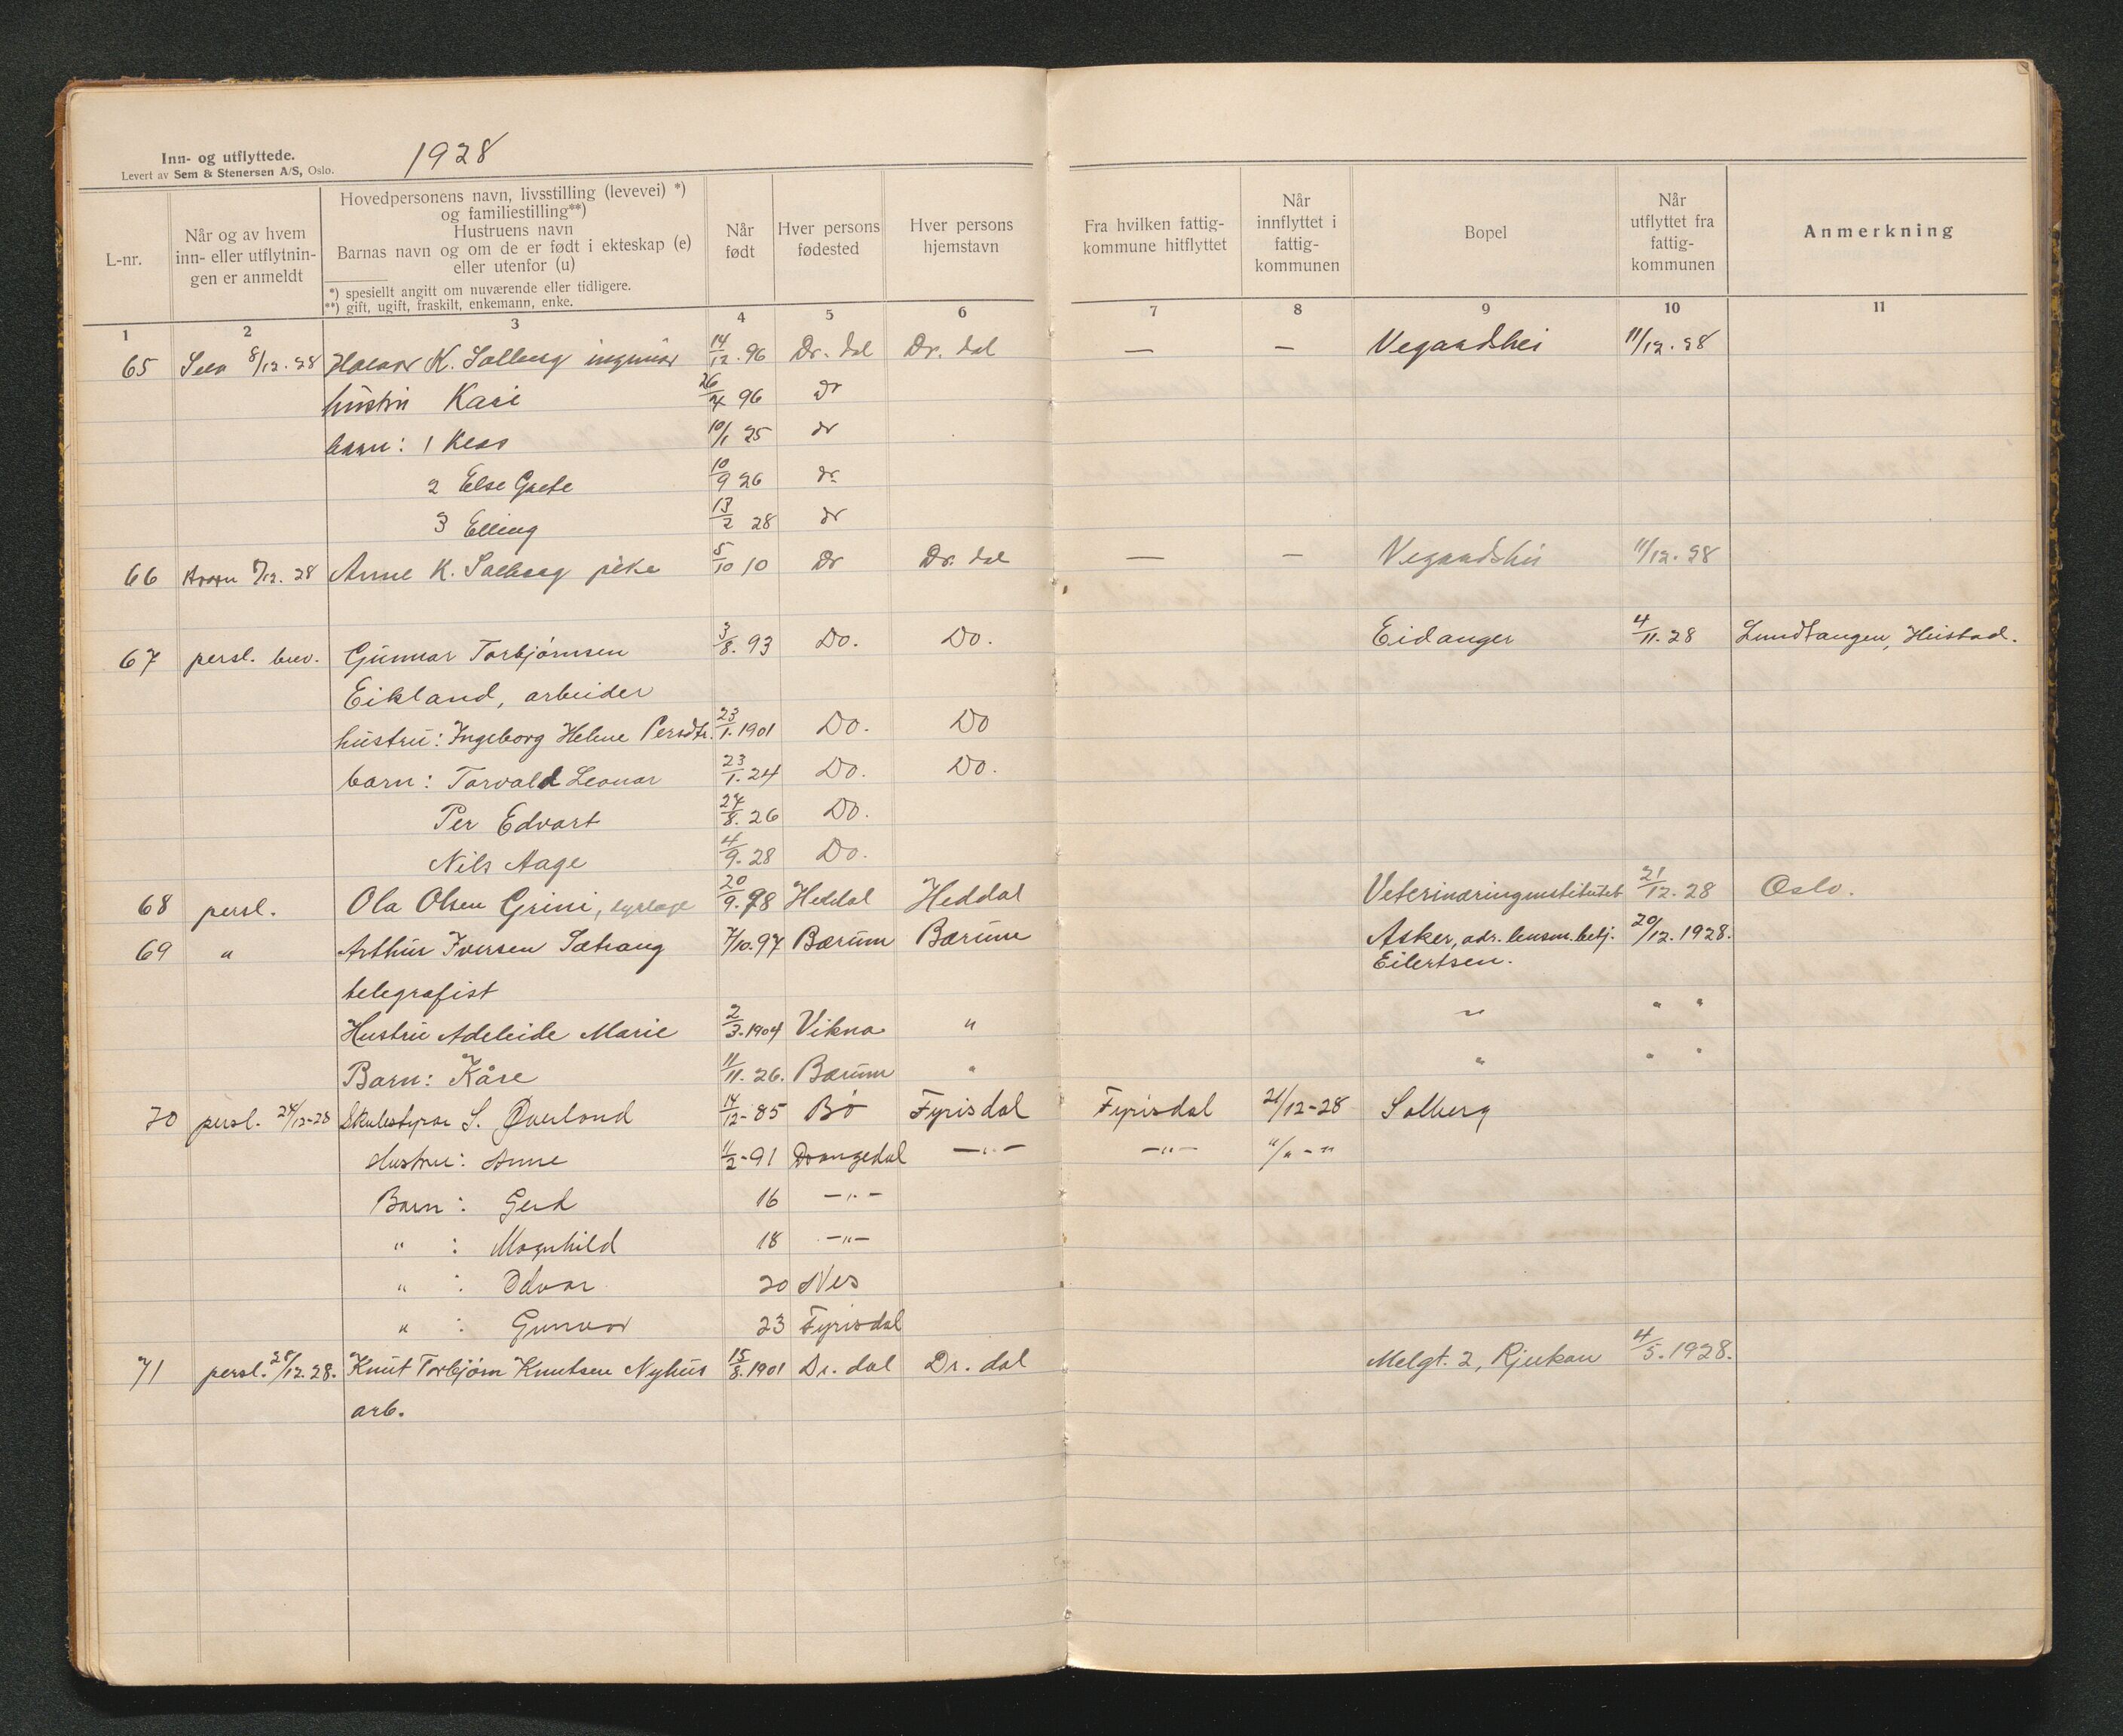 Inn- og utflyttede.
Levert av Sem & Stenersen A/S, Oslo.
1928
L-nr.
Når og av hvem inn- eller utflytnin-gen er anmeldt
Hovedpersonens navn, livsstilling (levevei) *)
og familiestilling**)
Hustruens navn
Barnas navn og om de er født i ekteskap (e)
eller utenfor (u)
*) spesiellt angitt om nuværende eller tidligere.
**) gift, ugift, fraskilt, enkemann, enke.
Når født
Hver persons fødested
Hver persons hjemstavn
Fra hvilken fattig-kommune hitflyttet
Når innflyttet i fattig-kommunen
Bopel
Når utflyttet fra fattig-kommunen
Anmerkning
1 2 3 4 5 6 7 8 9 10 11
65 8/12.28 K. Solberg ingeniør 14/12.96 Dr. dal Dr. dal — — Vegardshei 11/12.28
hustru Kari 26/4 96 Dr
barn: 1 10/1 25 Dr
2 Else Grete 10/9 26 Dr
3 Elling 13/2 28 Dr
66 8/12.28 Anne K. Solberg pike 5/10 10 Dr Dr. dal — — Vegardshei 11/12.28
67 persl. brev. Gunnar Torbjørnsen 3/8.93 Do. Do. Eidanger 4/11.28 Lundtangen, Heistad.
Eikland, arbeider
hustru: Ingeborg Helene Persdtr. 23/1.1901 Do. Do
barn: Torvald Leonar 23/1.24 Do. Do.
Per Edvart 27/8.26 Do.
Nils Aage 4/9.28 Do.
68 persl. Ola Olsen Grini, dyrlæge 20/9.98 Heddal Heddal Veterinæringinstitutet 21/12.28 Oslo.
69 " Arthur Iversen Sætrang 7/10.97 Bærum Bærum Asker, adr. lensm.betj. 20/12.1928.
Eilertsen.
telegrafist
Hustru Adeleide Marie 2/3.1904 Vikna " " " "
Barn: Kåre 11/11.26. Bærum " " " "
70 persl. 24/12-28 Skulestyrar S. Øverland 14/12-85 Bø Fyrisdal Fyrisdal 21/12-28 Solberg
Hustru: Anne 11/2-91 Drangedal —"— —"— "/"-"
Barn: Gerd 16 —"—
" : Magnhild 18 —"—
" : Odvar 20 Nes
" : Gunvor 23 Fyrisdal
71 persl. 28/12.28. Knut Torbjørn Knutsen Nyhus 15/8.1901 Dr. dal Dr. dal Melgt. 2, Rjukan 4/5.1928.
arb.